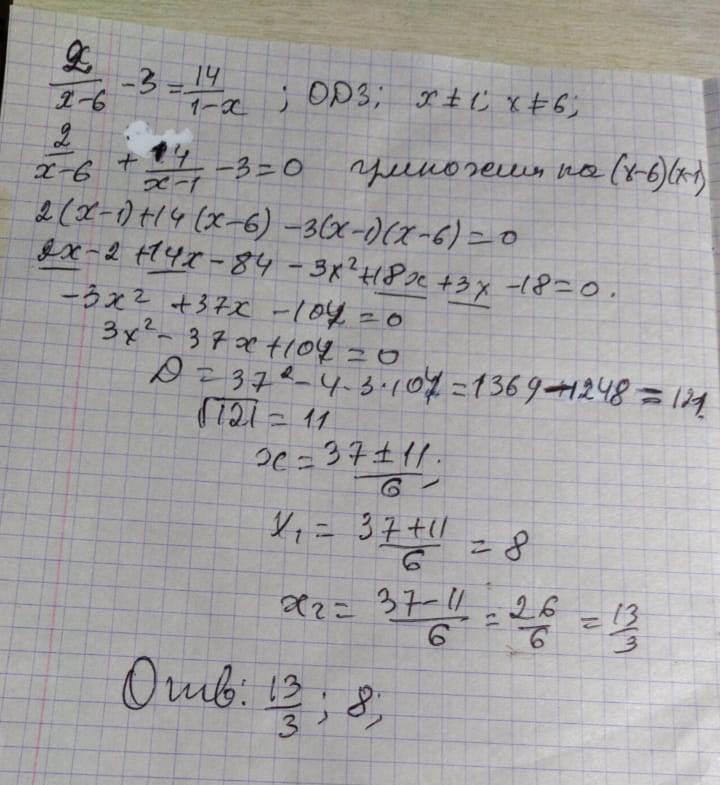 2/(x-6) - 3 = 14/(1-x) ; ОДЗ; x ≠ 1; x ≠ 6;
2/(x-6) + 14/(x-1) - 3 = 0 умножим на (x-6)(x-1)
2(x-1)+14(x-6)-3(x-1)(x-6)=0
2x-2+14x-84-3x²+18x+3x-18=0.
-3x²+37x-104=0
3x²-37x+104=0
D=37²-4·3·104=1369-1248=121.
√121=11
x=(37±11)/6;
x₁=(37+11)/6=8
x₂=(37-11)/6=26/6=13/3
Отв: 13/3; 8;